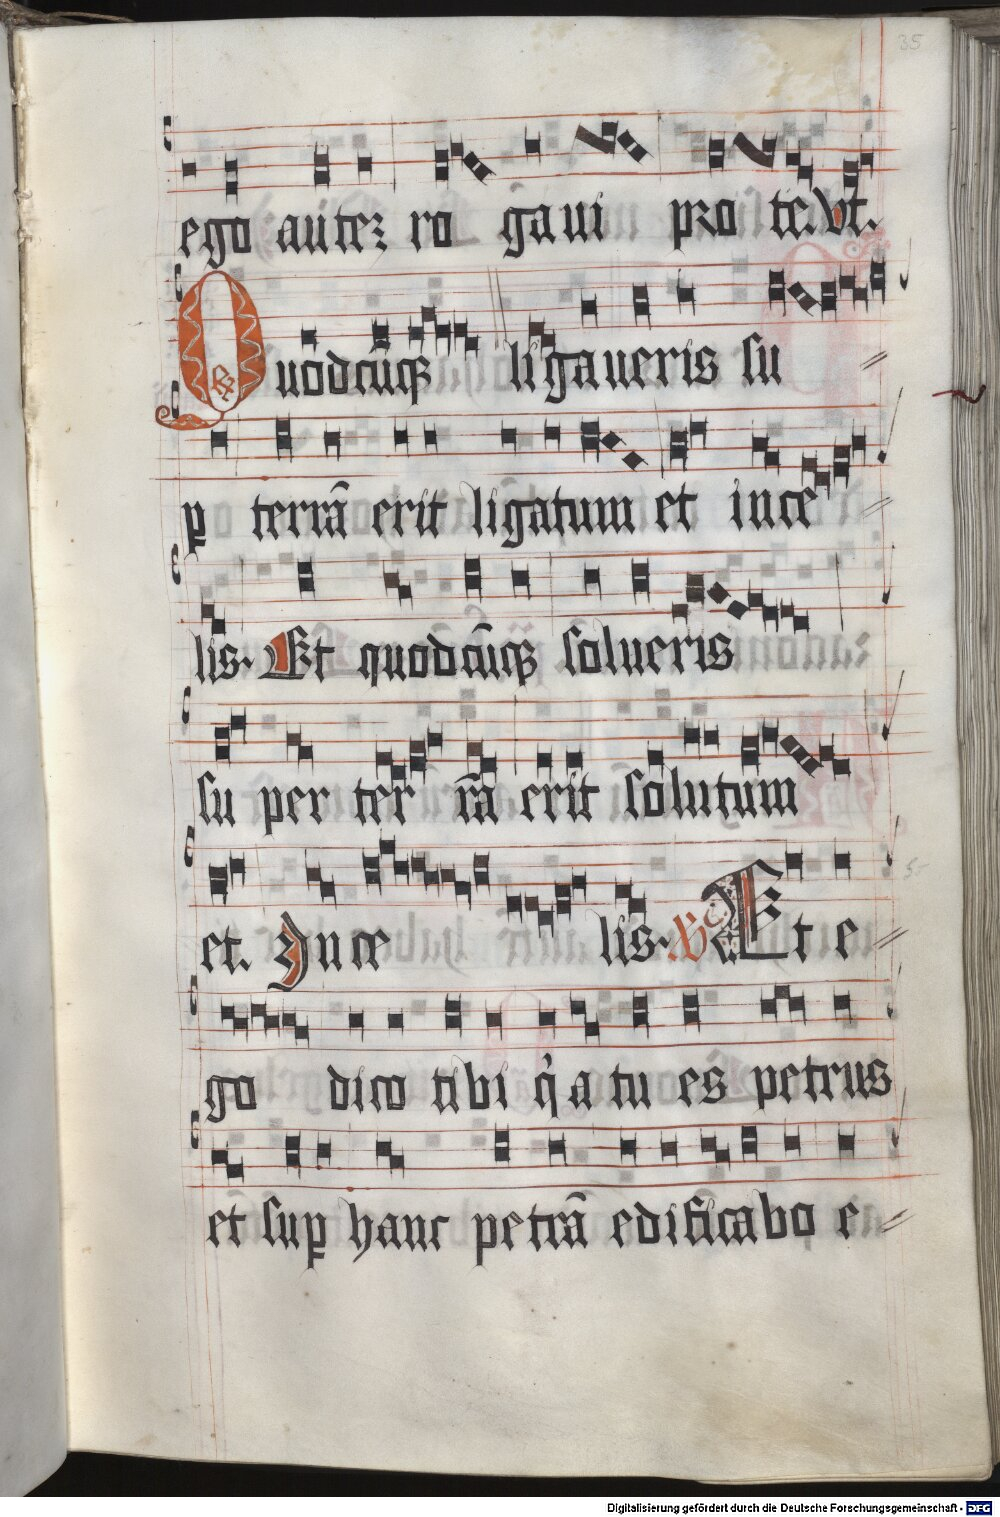 35
ego autez ro gaui pro te. Vt.
Quodcūqꝫ ligaueris su
ꝑ terrā erit ligatum et ince
lis. Et quodcūqꝫ solueris
su per ter rā erit solutum
et. In ce lis. Et e
go dico tibi qͥa tu es petrus
et suꝑ hanc petrā edificabo e
Digitalisierung gefördert durch die Deutsche Forschungsgemeinschaft - DFG